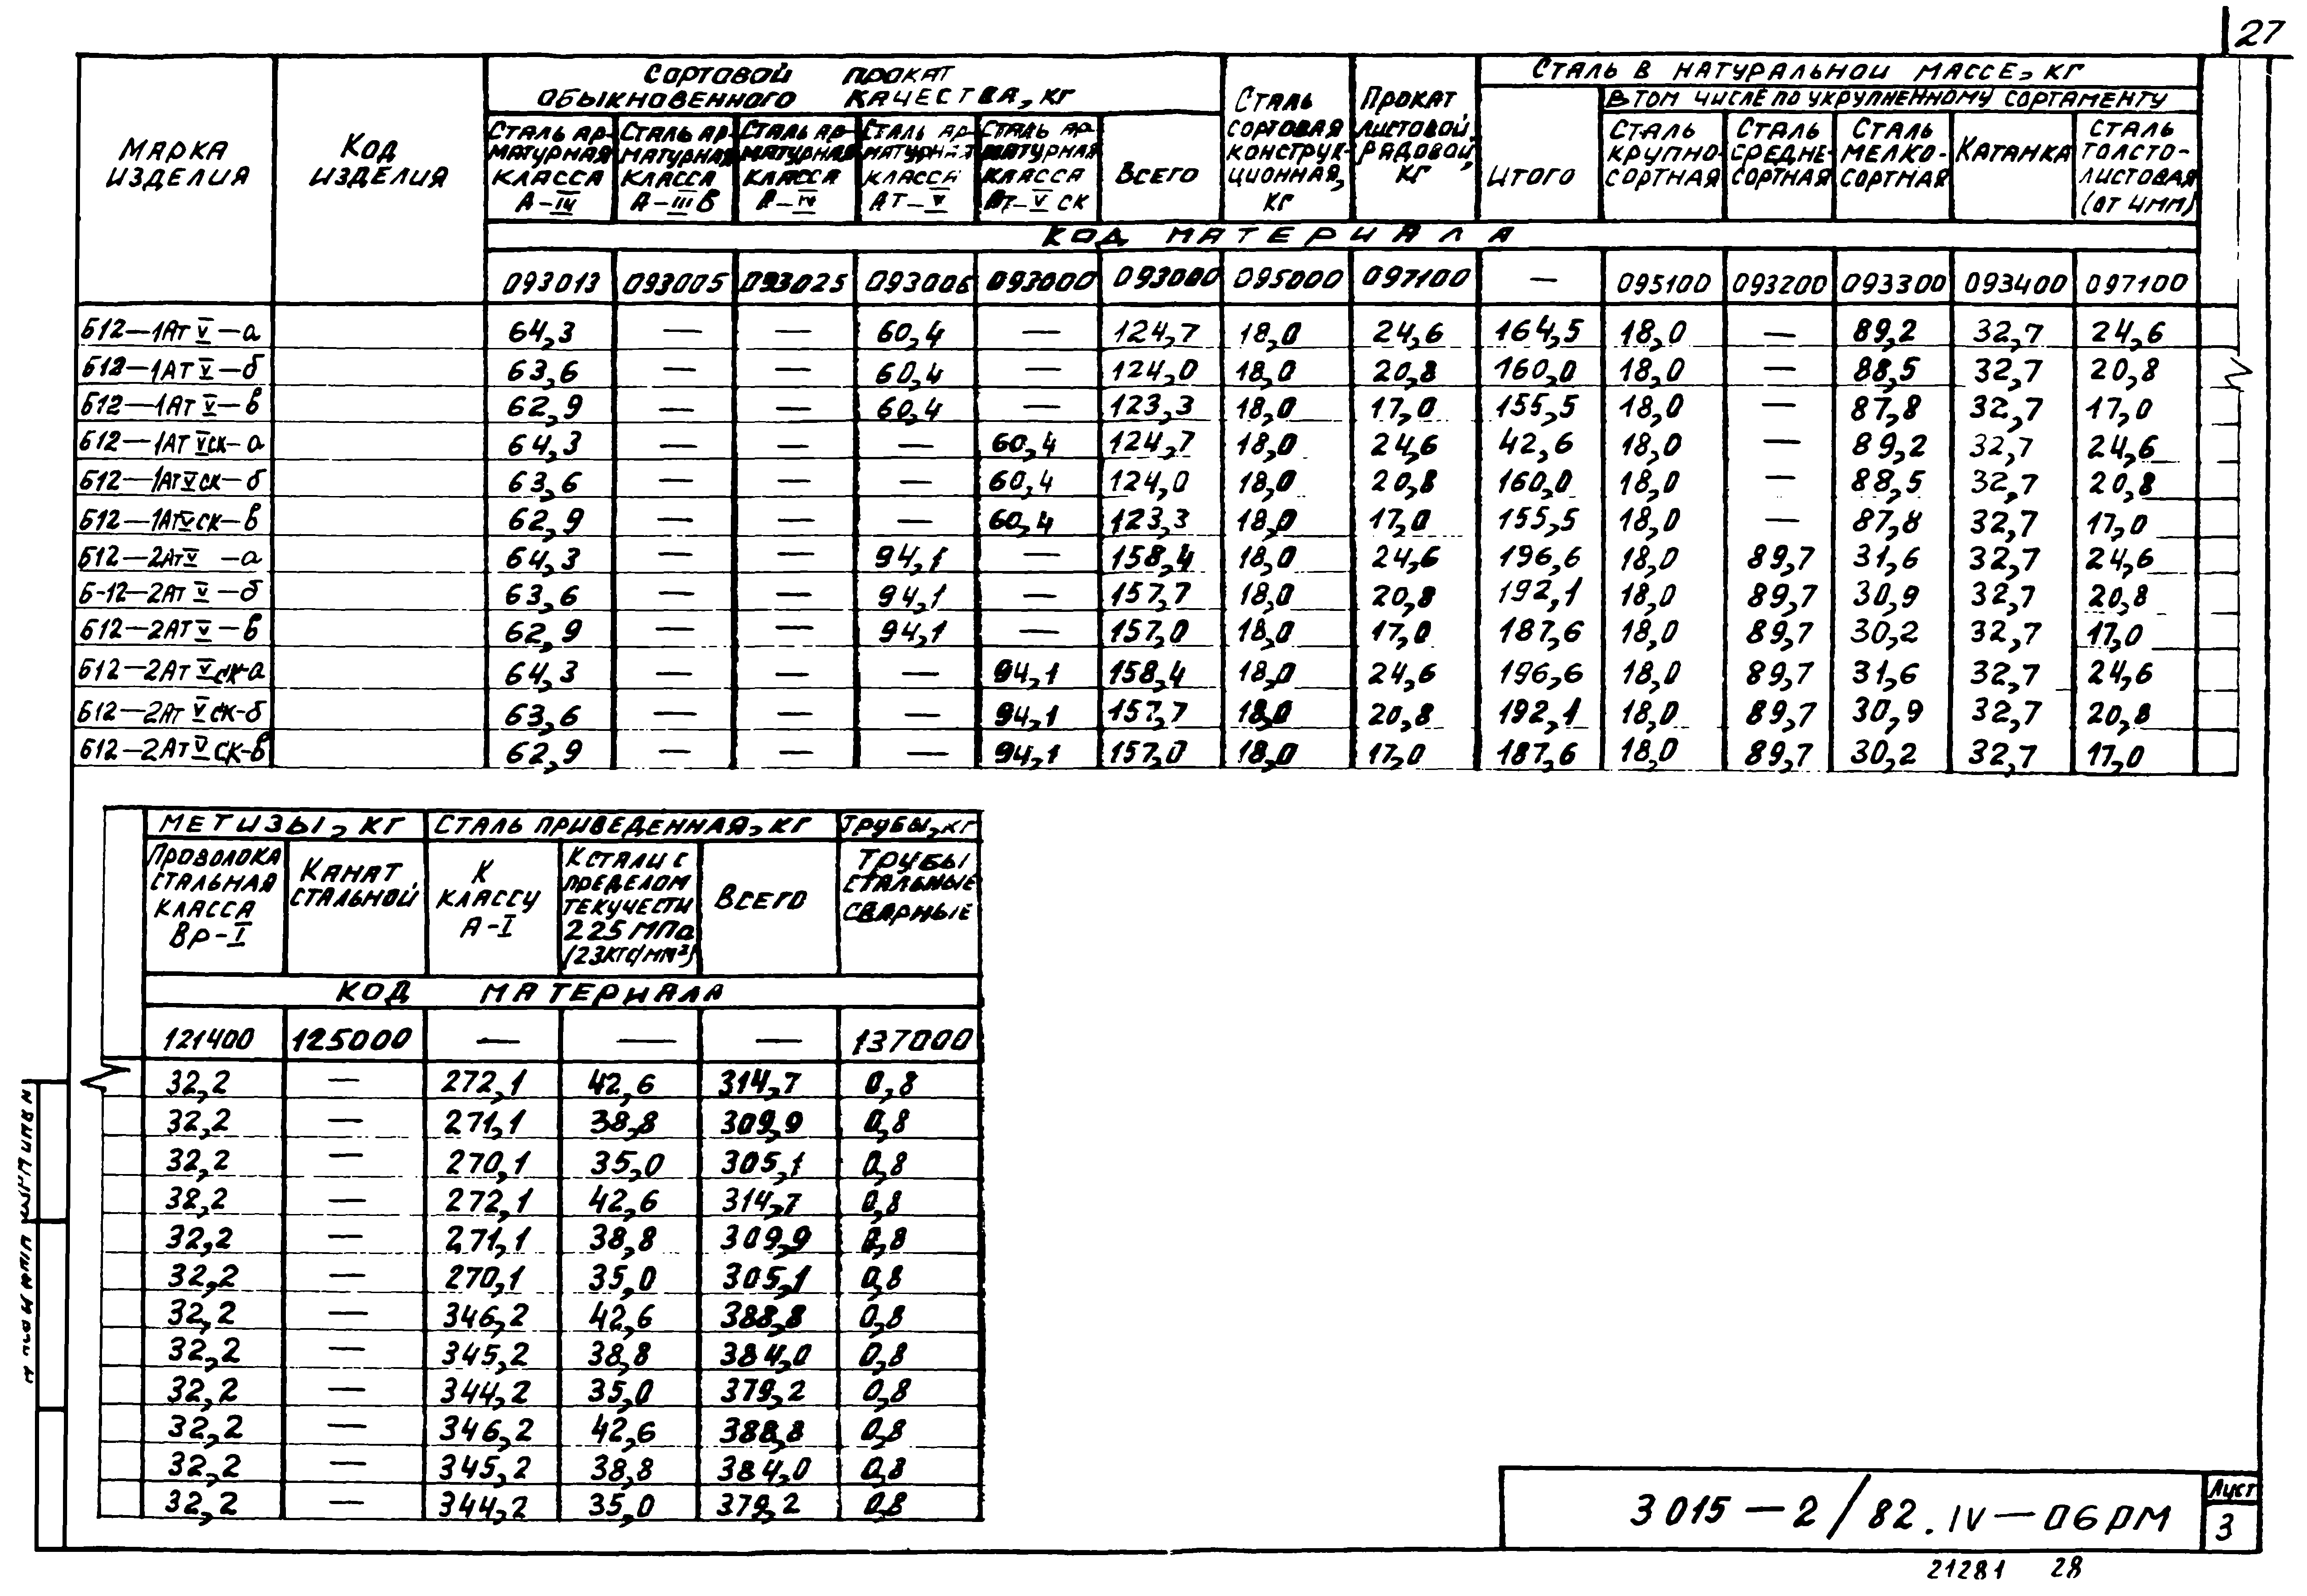 27
Марка изделия | Код изделия | Сортовой прокат обыкновенного качества, кг | Сталь сортовая конструкционная, кг | Прокат листовой рядовой, кг | Сталь в натуральной массе, кг
Сталь арматурная класса А-IV | Сталь арматурная класса А-IIIВ | Сталь арматурная класса А-IV | Сталь арматурная класса Ат-V | Сталь арматурная класса Ат-V СК | Всего | Итого | В том числе по укрупненному сортаменту
Сталь крупносортная | Сталь среднесортная | Сталь мелкосортная | Катанка | Сталь толстолистовая (от 4мм)
Код материала
093013 093005 093025 093006 093000 093000 095000 097100 — 095100 093200 093300 093400 097100
Б12—1Ат V—а 64,3 — — 60,4 — 124,7 18,0 24,6 164,5 18,0 — 89,2 32,7 24,6
Б12—1Ат V—б 63,6 — — 60,4 — 124,0 18,0 20,8 160,0 18,0 — 88,5 32,7 20,8
Б12—1Ат V—в 62,9 — — 60,4 — 123,3 18,0 17,0 155,5 18,0 — 87,8 32,7 17,0
Б12—1Ат Vск—а 64,3 — — — 60,4 124,7 18,0 24,6 42,6 18,0 — 89,2 32,7 24,6
Б12—1Ат Vск—б 63,6 — — — 60,4 124,0 18,0 20,8 160,0 18,0 — 88,5 32,7 20,8
Б12—1Ат Vск—в 62,9 — — — 60,4 123,3 18,0 17,0 155,5 18,0 — 87,8 32,7 17,0
Б12—2Ат V —а 64,3 — — 94,1 — 158,4 18,0 24,6 196,6 18,0 89,7 31,6 32,7 24,6
Б-12—2Ат V—б 63,6 — — 94,1 — 157,7 18,0 20,8 192,1 18,0 89,7 30,9 32,7 20,8
Б12—2Ат V—в 62,9 — — 94,1 — 157,0 18,0 17,0 187,6 18,0 89,7 30,2 32,7 17,0
Б12—2Ат Vск-а 64,3 — — — 94,1 158,4 18,0 24,6 196,6 18,0 89,7 31,6 32,7 24,6
Б12—2Ат Vск-б 63,6 — — — 94,1 157,7 18,0 20,8 192,1 18,0 89,7 30,9 32,7 20,8
Б12—2Ат V ск-в 62,9 — — — 94,1 157,0 18,0 17,0 187,6 18,0 89,7 30,2 32,7 17,0
Метизы, кг | Сталь приведенная, кг | Трубы, кг
Проволока стальная класса Вр-I | Канат стальной | К классу А-I | К стали с пределом текучести 225 МПа (23кгс/мм²) | Всего | Трубы стальные сварные
Код материала
121400 125000 — — — 137000
32,2 — 272,1 42,6 314,7 0,8
32,2 — 271,1 38,8 309,9 0,8
32,2 — 270,1 35,0 305,1 0,8
32,2 — 272,1 42,6 314,7 0,8
32,2 — 271,1 38,8 309,9 0,8
32,2 — 270,1 35,0 305,1 0,8
32,2 — 346,2 42,6 388,8 0,8
32,2 — 345,2 38,8 384,0 0,8
32,2 — 344,2 35,0 379,2 0,8
32,2 — 346,2 42,6 388,8 0,8
32,2 — 345,2 38,8 384,0 0,8
32,2 — 344,2 35,0 379,2 0,8
3 015 — 2 / 82. IV — 06 РМ
Лист
3
21281 28